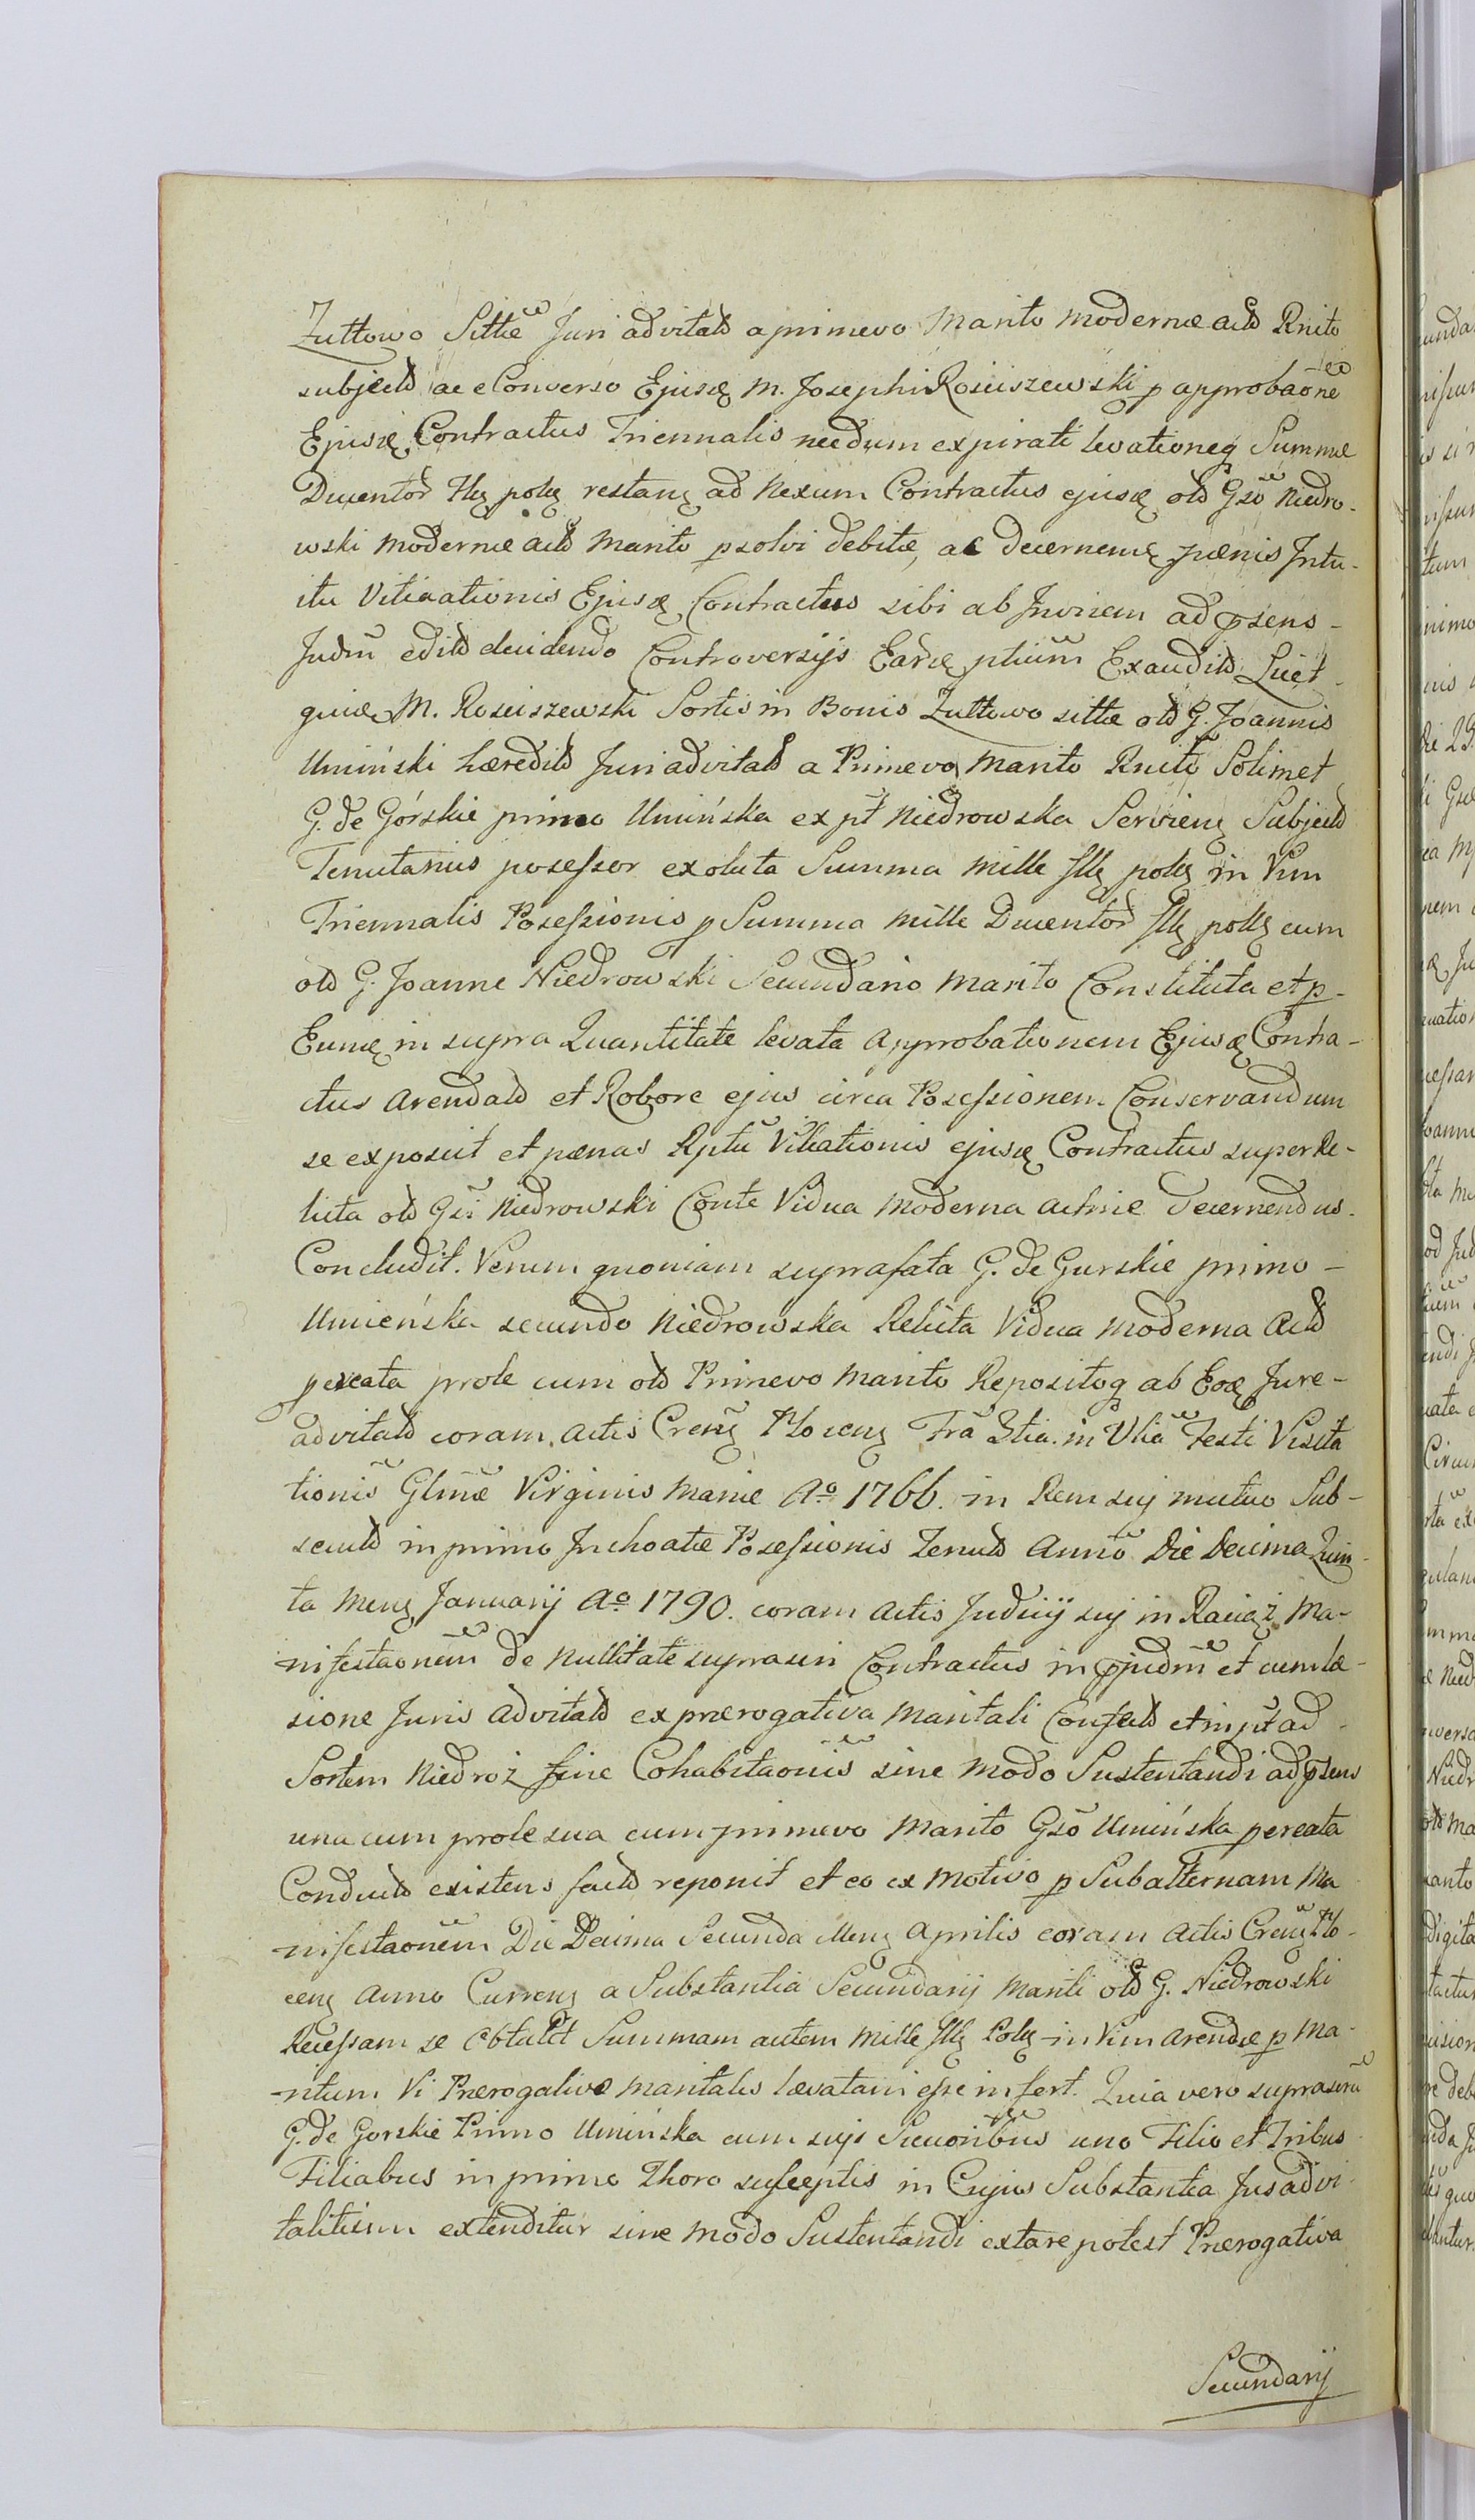 Zułtowo Sittae Juri advitald a primevo Marito modernae actd Rnito
subjectd ac e Converso Ejusq M. Josephi Rosciszewski p approbaone
Ejusq Contractus Triennalis necdum expirati levationeq Summae
Ducentor flg polg restang ad Nexum Contractus ejusq old Gso Niedro-
wski modernae actd Marito psolvi debitae, ac decernemg paenis Intu-
itu Vitiationis Ejusq Contractus sibi ab Invicem ad psens-
Judm editd decidendo Controversijs Earq ptium Exauditd Licet
quidq M. Rosciszewski Sortis in Bonis Zułtowo sittae old G. Joannis
Umiński haereditd Juri advitald a Primevo Marito Rniti Solimet
G. de Górskie primo Umińska ex pt Niedrowska Servieng Subjectd
Tenutarius possessor exoluta Summa Mille flg polg in Vim
Triennalis Posessionis p Summa Mille Ducentor flg polg cum
old G. Joanne Niedrowski Secundario Marito Constituta et p-
Eumq in supra Quantitate levata Approbationem Ejusq Contra-
ctus Arendatd et Robore ejus circa Posessionem Conservandum
se exposcit et paenas Rptu Vitiationis ejusq Contractus super Re-
licta old Gsi Niedrowski Conte Vidua moderna actrice decernendus.
Concludit. Verum quoniam suprafata G. de Gurskie primo-
Umieńska secundo Niedrowska Relicta Vidua moderna Actd
pcreata prole cum old Primevo Marito Repositoq ab Eoq Jure-
advitald coram Actis Creng Ploceng Fra 3tia in Vlia Festi Visita
tionis Glmae Virginis Mariae Ao 1766. in Rem suj mutuo Sub-
secutd in primo Inchoatae Posessionis Tenutd Anno Die Decima Quin-
ta Meng Januarij Ao 1790. coram Actis Judicij suj in Raciąż Ma-
nifestaonem de Nullitate suprascri Contractus in pjudm et cum lae-
sione Juris advitald ex praerogativa Maritali Confectd et in pt ad
Sortem Niedroż fine Cohabitaonis sine modo Sustentandi ad psens
una cum prole sua cum primevo Marito Gso Umińska pcreata
Conductd existens factd reponit et eo ex Motivo p Subalternam Ma
nifestaonem Die Decima Secunda Meng Aprilis coram Actis Creng Plo-
ceng Anno Curreng a Substantia Secundarij Mariti old G. Niedrowski
Recessam se Obtulit Summam autem Mille flg Polg in Vim Arendae p Ma-
ritum Vi Praerogativae Maritalis laevatam esse infert. Quia vero suprascri
G. de Gorskie Primo Umińska cum sujs Succoribus uno Filio et Tribus
Filiabus in primo Thoro susceptis in Cujus Substantia Jus advi-
talitium extenditur sine modo Sustentandi extare potest Praerogativa
Secundarij